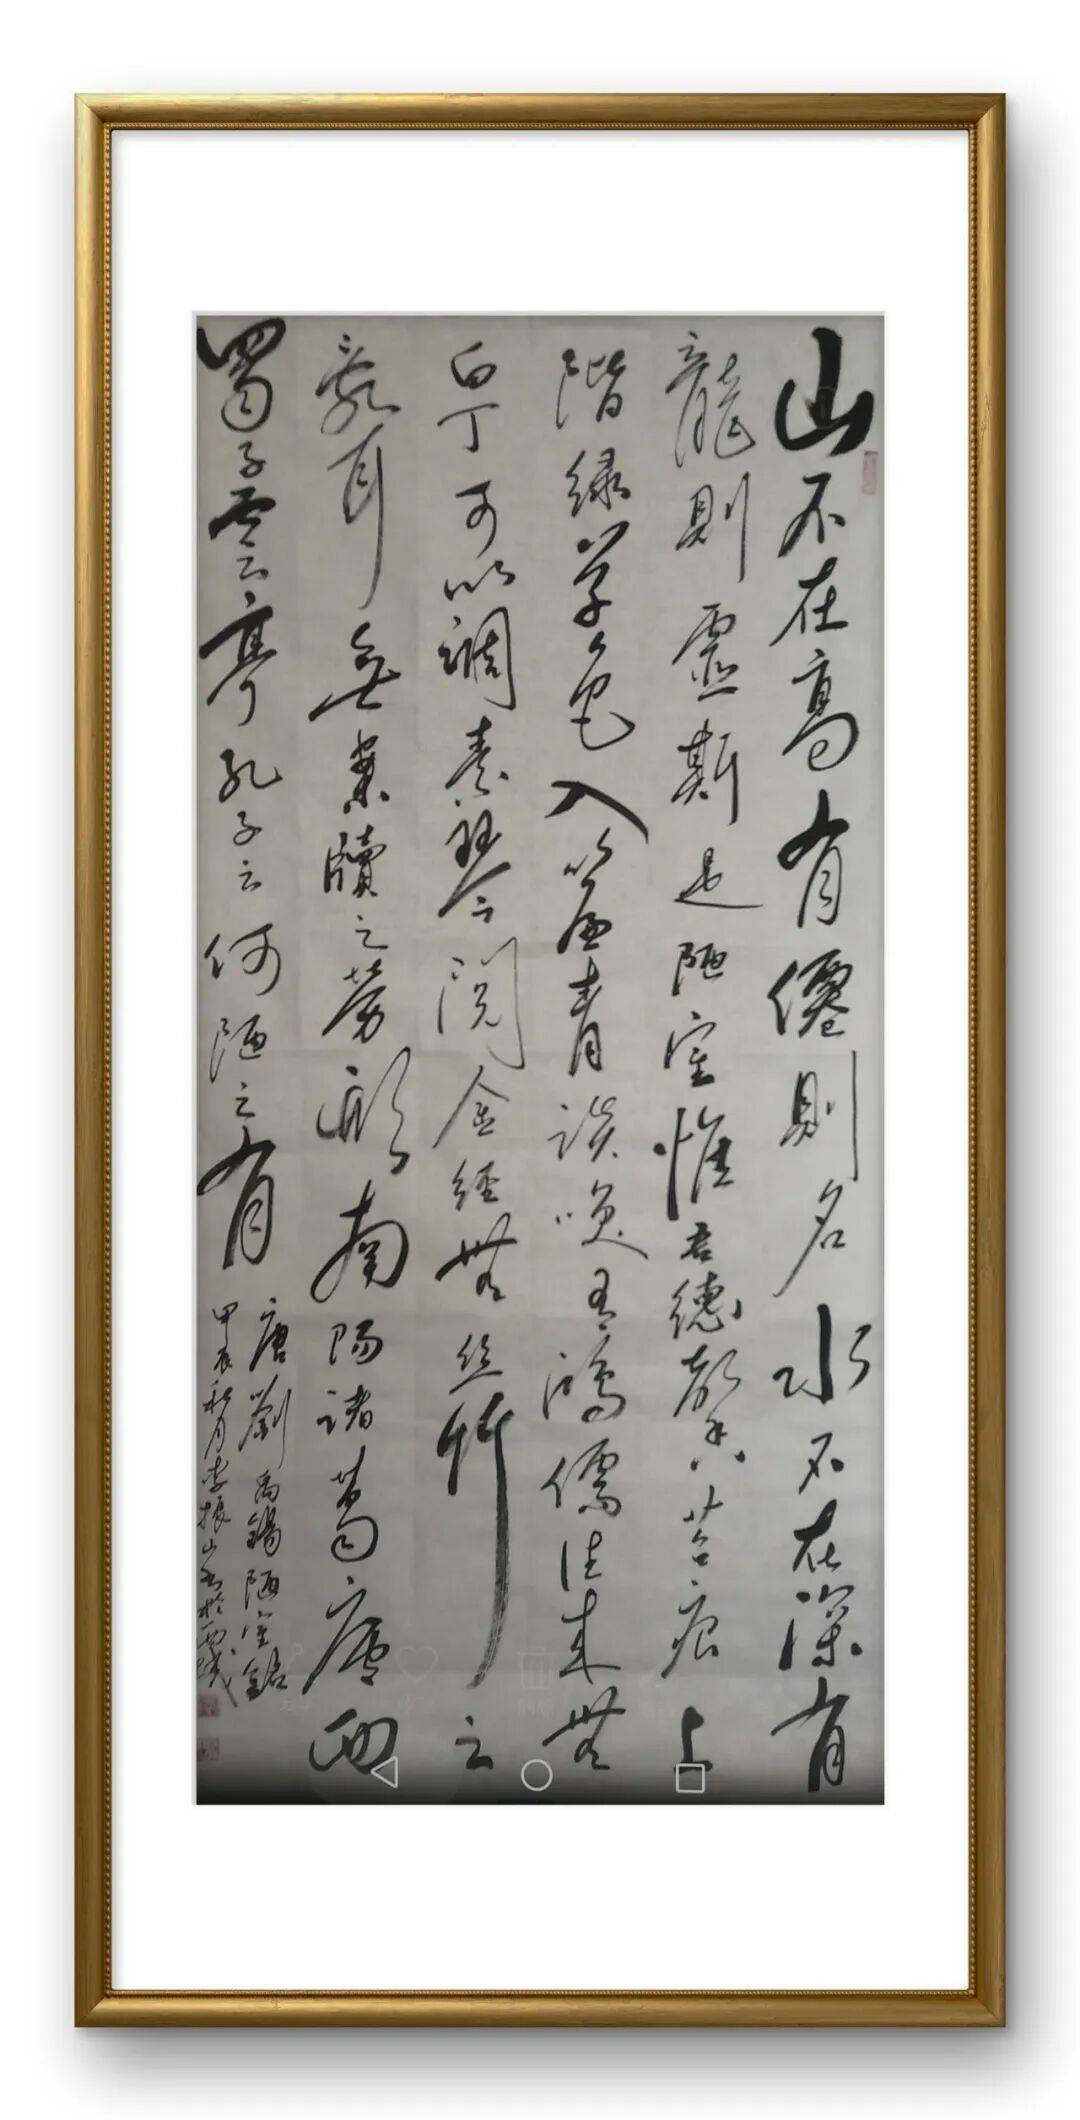 山不在高有僊則名水不在深有
龍則靈斯是陋室惟吾德馨苔痕上
階绿草色入簾青談笑有鴻儒往来無
白丁可以調素琴閱金經無丝竹之
亂耳無案牘之勞形南陽諸葛廬西
蜀子雲亭孔子云何陋之有
唐劉禹錫陋室銘
甲辰秋月李振山书於西